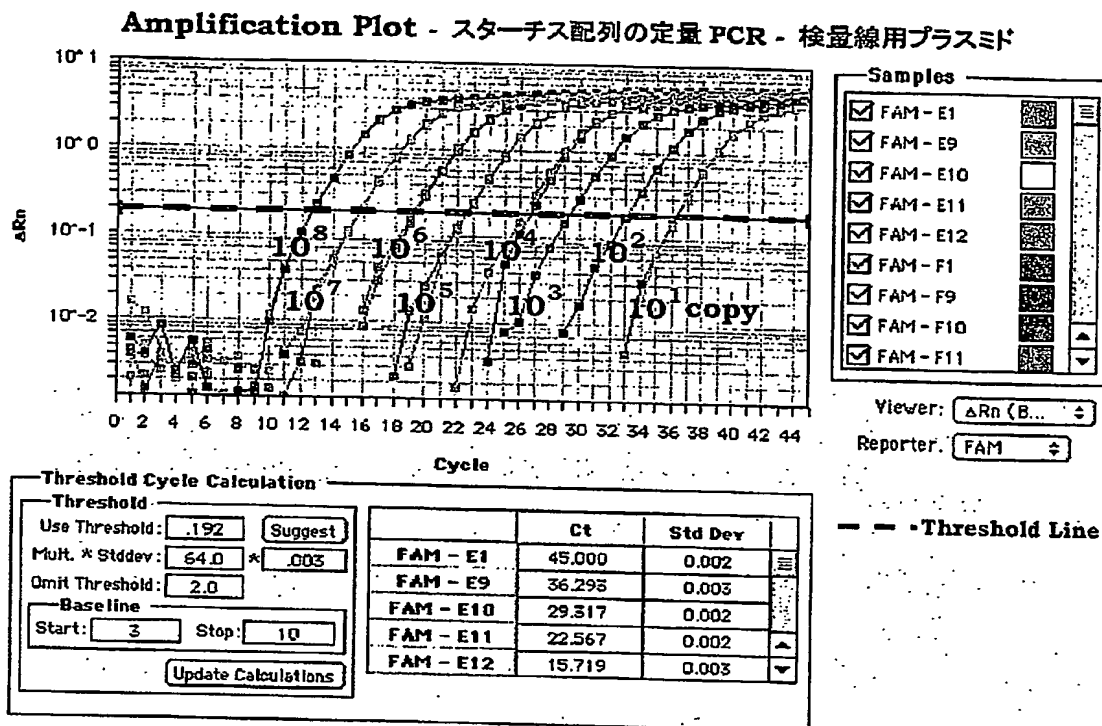 Amplification Plot - スターチス配列の定量 PCR - 検量線用プラスミド
10^1
10^0
10^-1
10^-2
ΔRn
10^8
10^7
10^6
10^5
10^4
10^3
10^2
10^1 copy
0 2 4 6 8 10 12 14 16 18 20 22 24 26 28 30 32 34 36 38 40 42 44
Cycle
Samples
FAM - E1
FAM - E9
FAM - E10
FAM - E11
FAM - E12
FAM - F1
FAM - F9
FAM - F10
FAM - F11
Viewer: ΔRn (B...
Reporter. FAM
Threshold Cycle Calculation
Threshold
Use Threshold: .192 Suggest
Mult. * Stddev: 64.0 * .003
Omit Threshold: 2.0
Baseline
Start: 3 Stop: 10
Update Calculations
Ct Std Dev
FAM - E1 45.000 0.002
FAM - E9 36.293 0.003
FAM - E10 29.317 0.002
FAM - E11 22.567 0.002
FAM - E12 15.719 0.003
Threshold Line